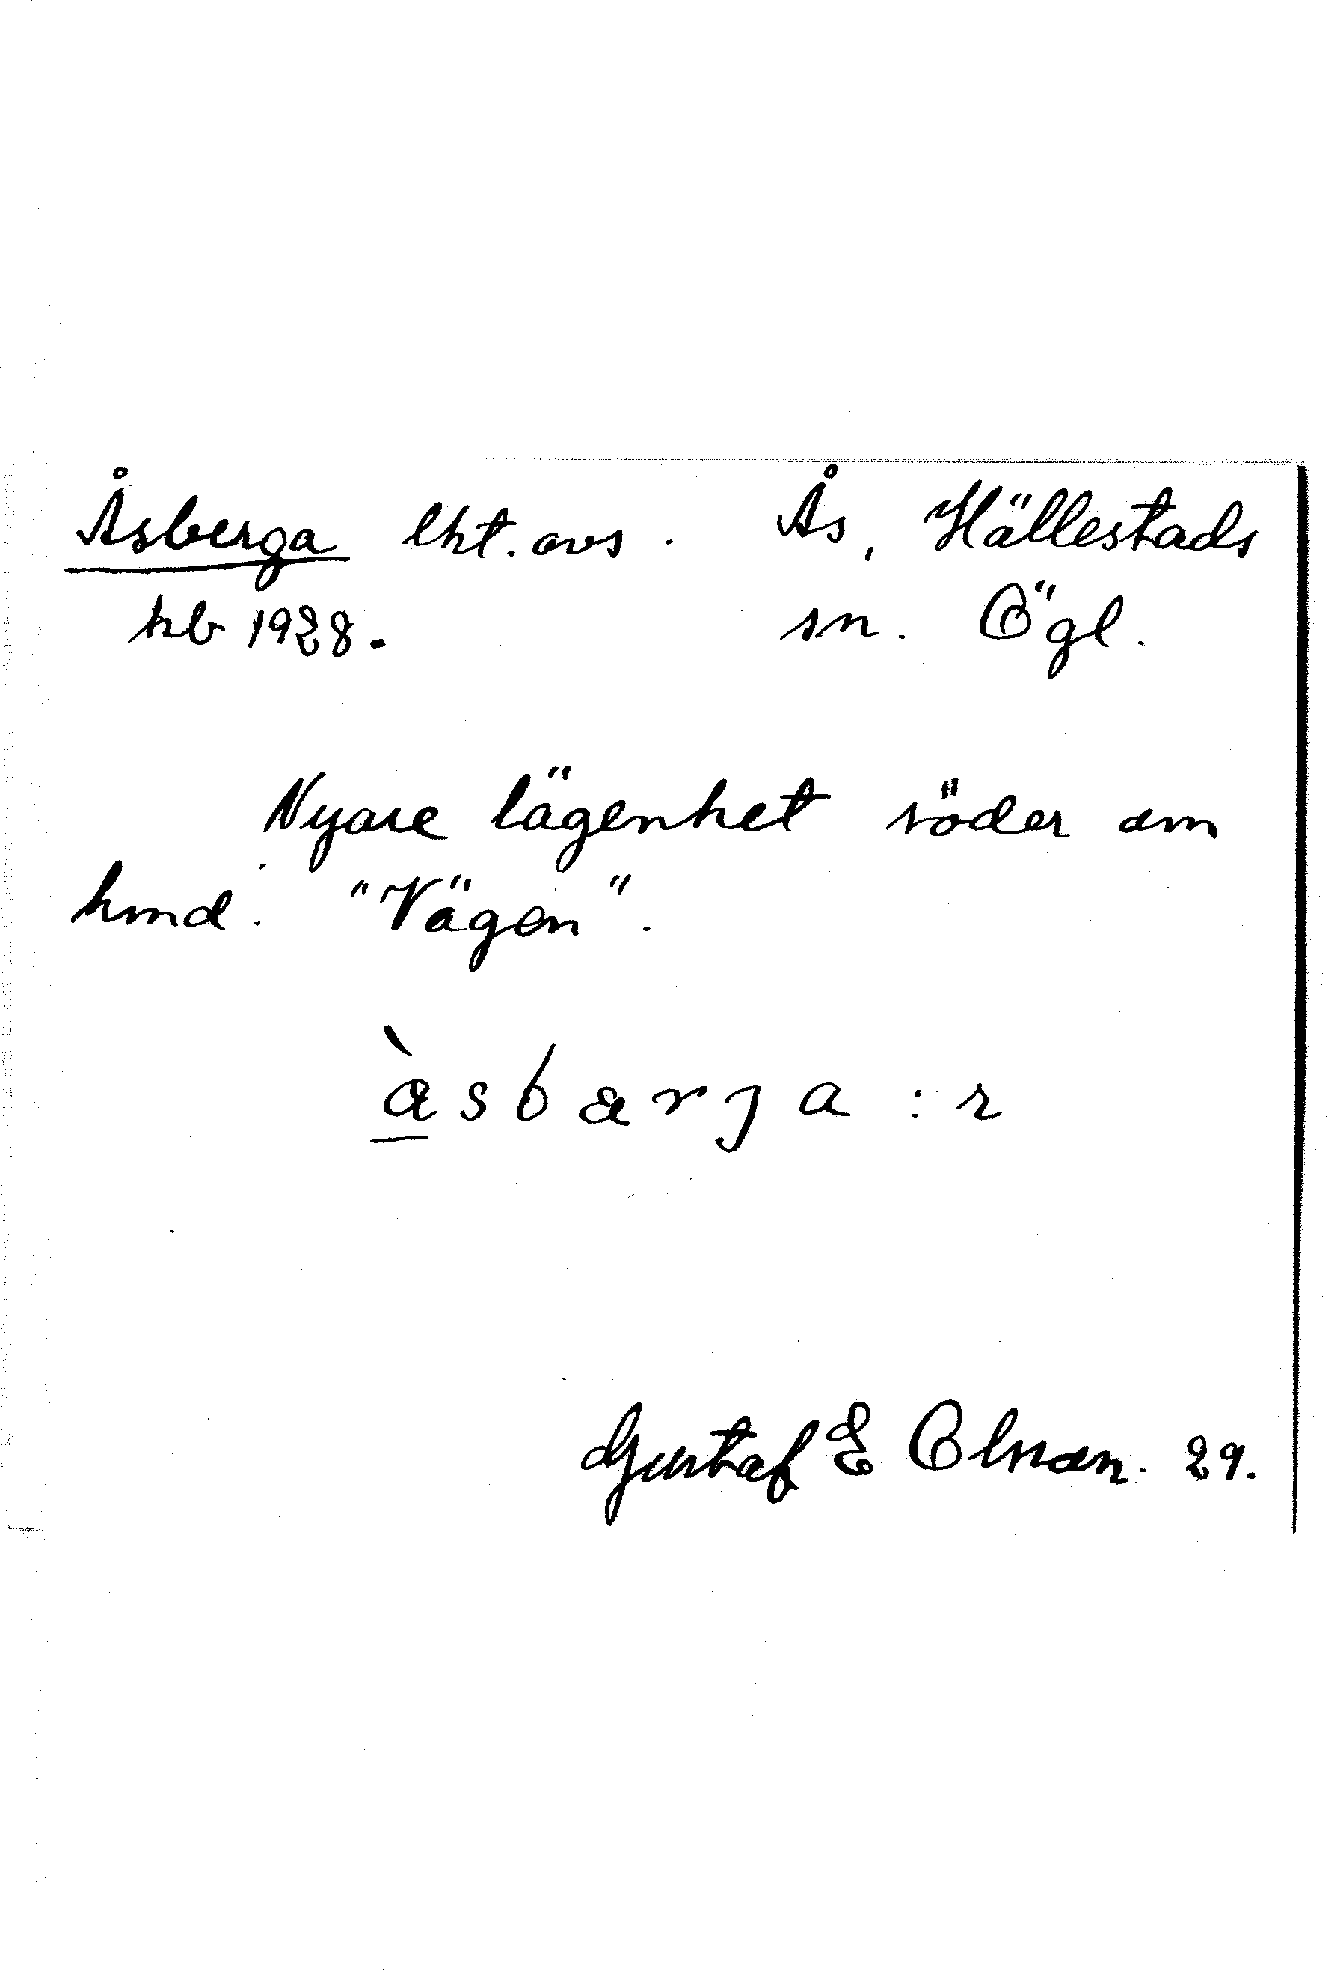 Åsberga lht. avs. Ås, Hällestads
hb 1928. sn. Ögl.
Nyare lägenhet söder om
hmd. "Vägen".
å̀sbærja :r
Gustaf E Olson. 29.